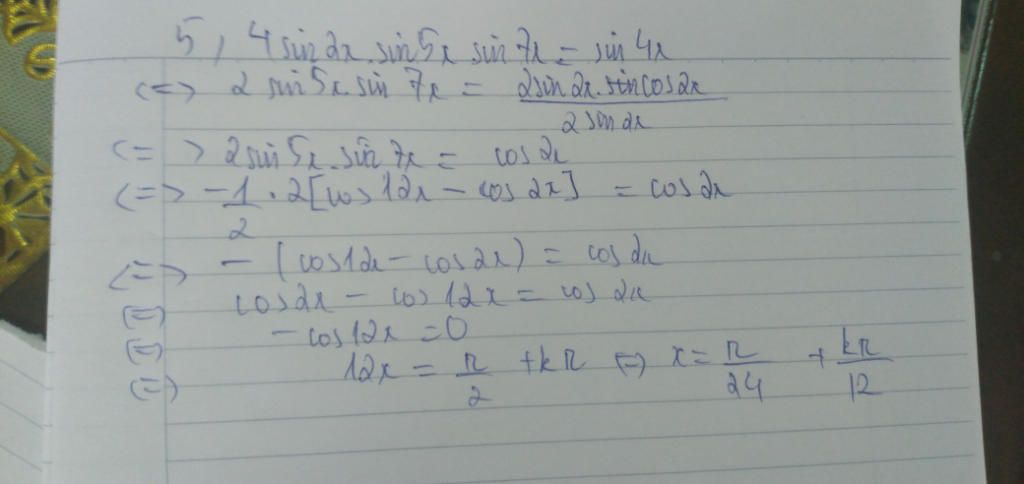 5, 4 sin2x. sin5x sin 7x = sin 4x
<=> 2 sin 5x sin 7x = 2sin 2x. sin cos2x / 2 sin 2x
<=> 2sin 5x. sin 7x = cos 2x
<=> -1/2 . 2[cos12x - cos 2x] = cos 2x
<=> - (cos12x - cos2x) = cos 2x
(=) cos2x - cos 12x = cos 2x
(=) - cos12x = 0
(=) 12x = π/2 + kπ (=) x = π/24 + kπ/12